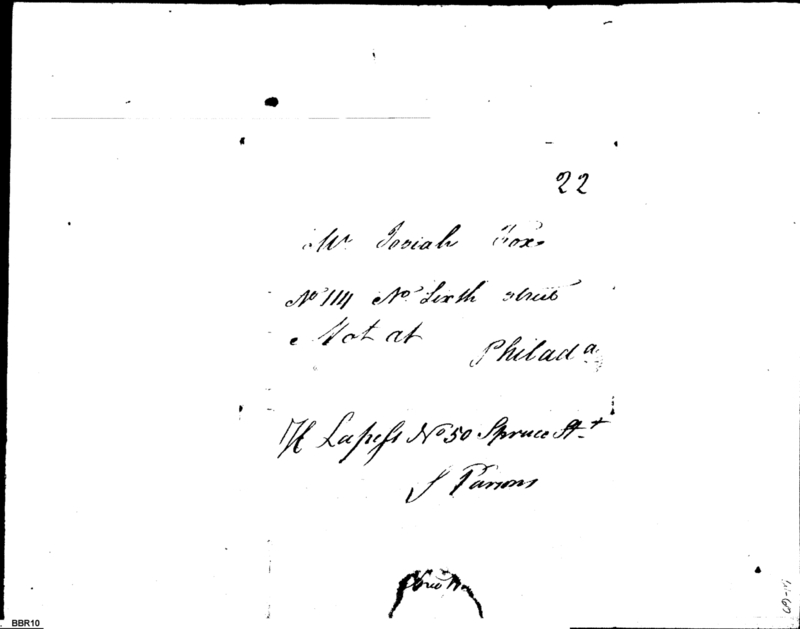 22
Mr Josiah Fox
No 114 No Sixth street
Not at
Philada
No 50 Spruce St
S Parsons
BBR10